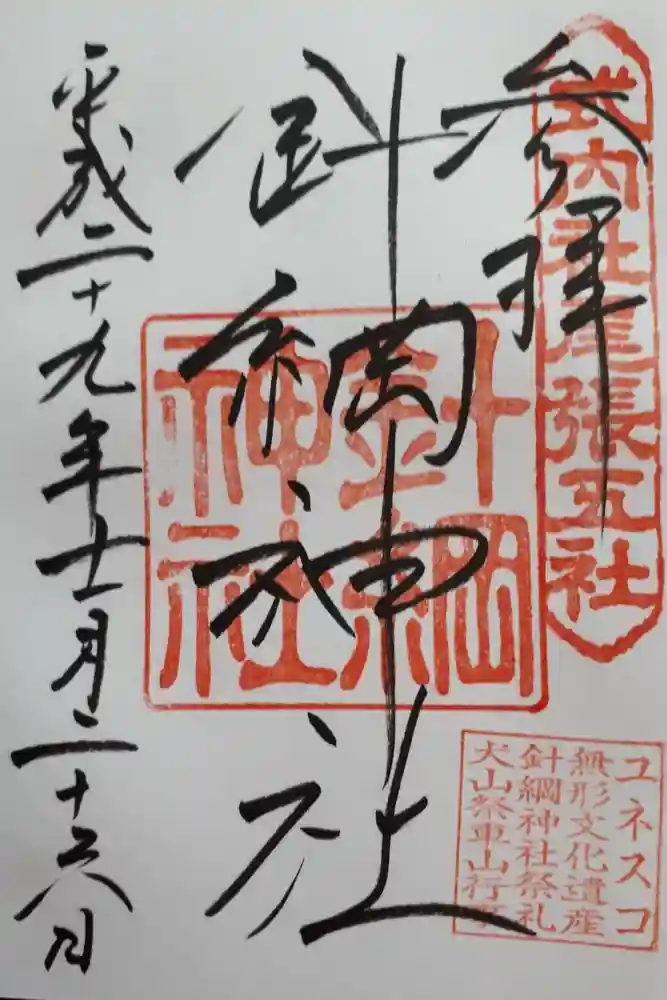 式内社尾張五社
参拝
針綱神社
針綱
神社
平成二十九年十一月二十六日
ユネスコ
無形文化遺産
針綱神社祭礼
犬山祭車山行事